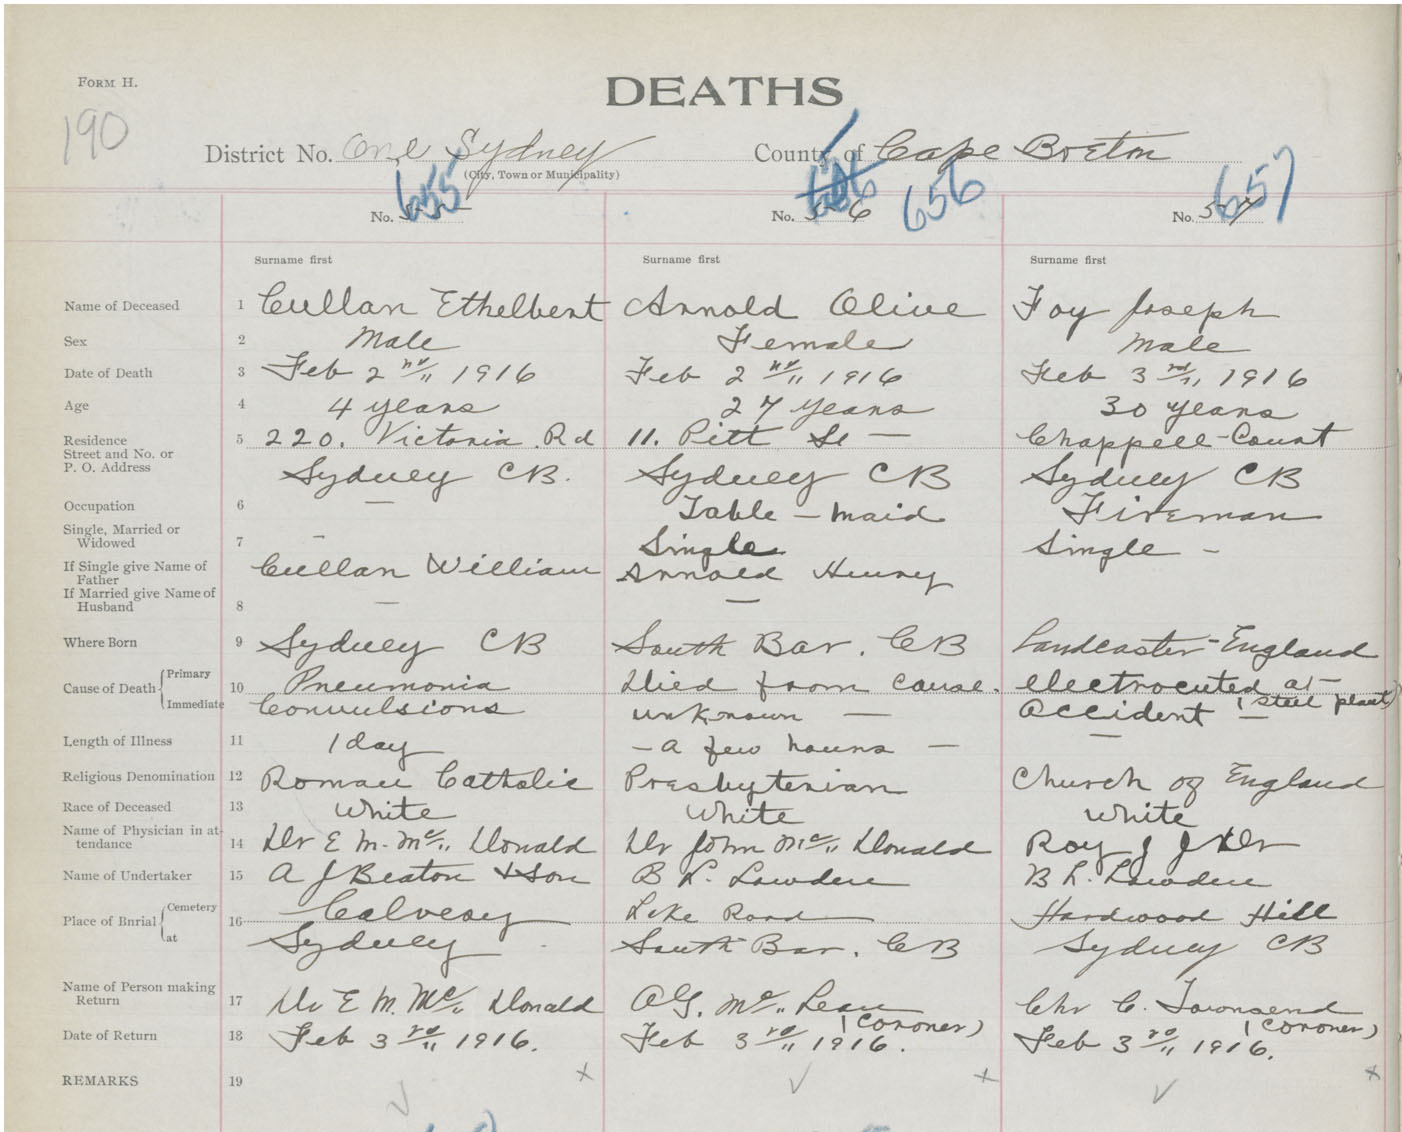 FORM H.
DEATHS
190
District No. One Sydney County of Cape Breton
(City, Town or Municipality)
655 656 656 657
No. 55 No. 56 No. 57
Surname first Surname first Surname first
Name of Deceased 1 Cullan Ethelbert Arnold Olive Foy Joseph
Sex 2 Male Female Male
Date of Death 3 Feb 2nd 1916 Feb 2nd 1916 Feb 3rd 1916
Age 4 4 years 27 years 30 years
Residence Street and No. or P. O. Address 5 220. Victoria Rd 11. Pitt St — Chappell-Court
Sydney CB. Sydney CB Sydney CB
Occupation 6 — Table-maid Fireman
Single, Married or Widowed 7 - Single Single -
If Single give Name of Father Cullan William Arnold Henry
If Married give Name of Husband 8 — —
Where Born 9 Sydney CB South Bar. CB Landcaster-England
Cause of Death { Primary 10 Pneumonia Died from cause. electrocuted at
Immediate Convulsions unknown — accident — (steel plant)
Length of Illness 11 1 day - a few hours - —
Religious Denomination 12 Roman Catholic Presbyterian Church of England
Race of Deceased 13 White White White
Name of Physician in attendance 14 Dr E M. Mc Donald Dr John Mc Donald Roy J J Dr
Name of Undertaker 15 A J Beaton & Son B L. Lowden B L. Lowden
Place of Burial { Cemetery 16 Calvery Like Road Hardwood Hill
at Sydney South Bar. CB Sydney CB
Name of Person making Return 17 Dr E M. Mc Donald AG. Mc Lean (Coroner) Chr C. Townsend (Coroner)
Date of Return 18 Feb 3rd 1916. Feb 3rd 1916. Feb 3rd 1916.
REMARKS 19